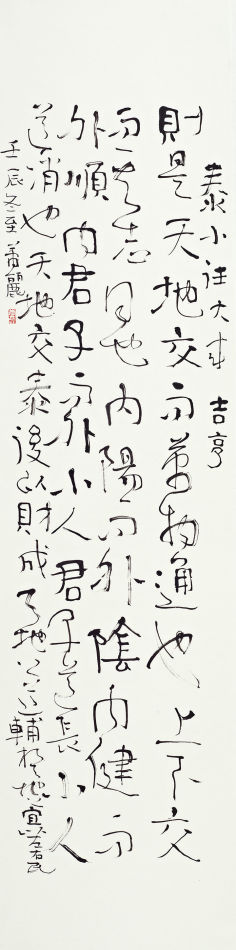 泰小往大來 吉亨
則是天地交而萬物通也上下交
而其志同也內陽而外陰內健而
外順內君子而外小人君子道長小人
道消也天地交泰後以財成天地之道輔相地宜左右民
壬辰冬至麗